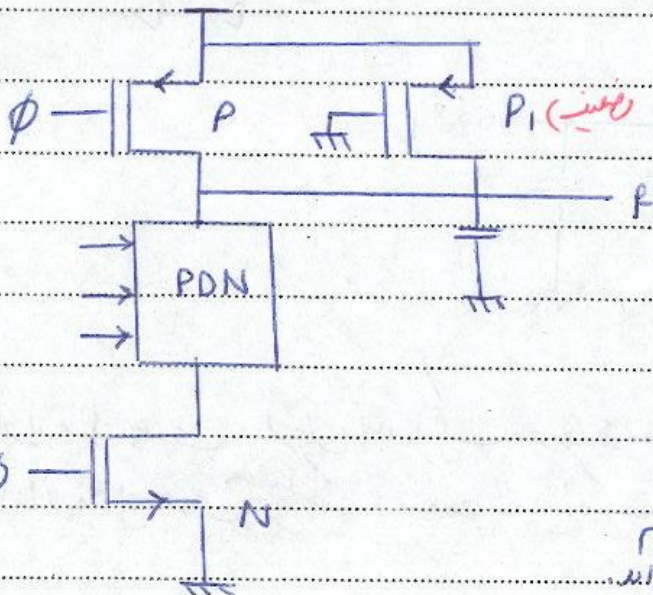 φ P P₁ (ضعیف)
F
PDN
φ
N